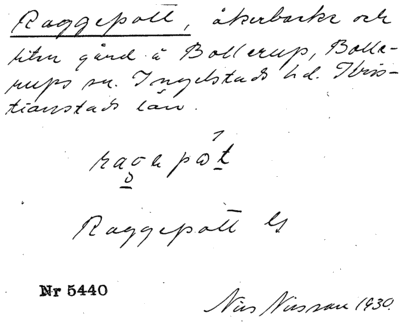 Raggepott, åkerbacke och
liten gård å Bollerup, Bolle-
rups sn. Ingelstads hd. Kris-
tianstads län.
Raggepott
Nr 5440
Nils Nilsson 1930.